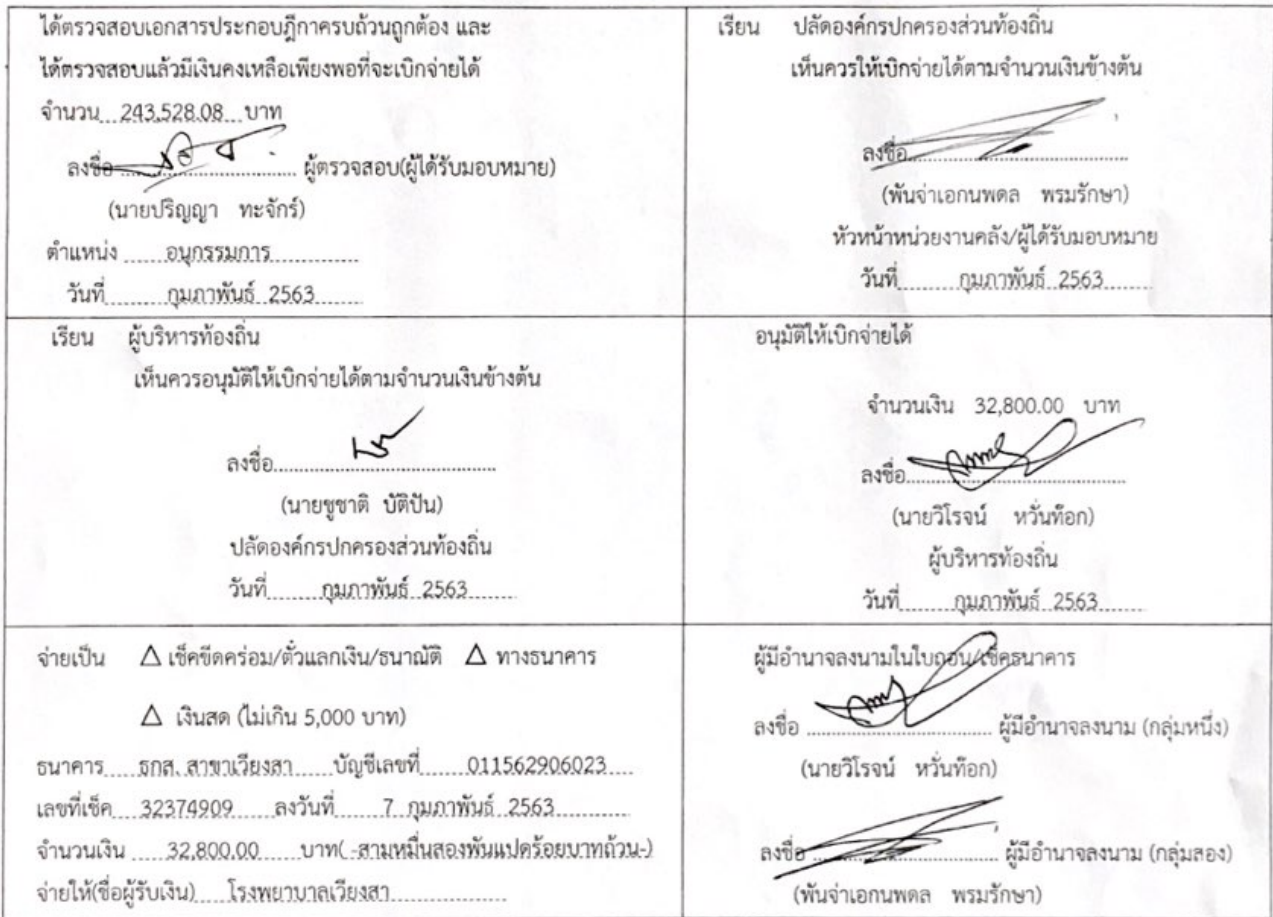 ได้ตรวจสอบเอกสารประกอบฎีกาครบถ้วนถูกต้อง และ
ได้ตรวจสอบแล้วมีเงินคงเหลือเพียงพอที่จะเบิกจ่ายได้
จำนวน 243,528.08 บาท
ลงชื่อ ผู้ตรวจสอบ(ผู้ได้รับมอบหมาย)
(นายปริญญา ทะจักร์)
ตำแหน่ง อนุกรรมการ
วันที่ กุมภาพันธ์ 2563
เรียน ปลัดองค์กรปกครองส่วนท้องถิ่น
เห็นควรให้เบิกจ่ายได้ตามจำนวนเงินข้างต้น
ลงชื่อ
(พันจ่าเอกนพดล พรมรักษา)
หัวหน้าหน่วยงานคลัง/ผู้ได้รับมอบหมาย
วันที่ กุมภาพันธ์ 2563
เรียน ผู้บริหารท้องถิ่น
เห็นควรอนุมัติให้เบิกจ่ายได้ตามจำนวนเงินข้างต้น
ลงชื่อ
(นายชูชาติ บัติปัน)
ปลัดองค์กรปกครองส่วนท้องถิ่น
วันที่ กุมภาพันธ์ 2563
อนุมัติให้เบิกจ่ายได้
จำนวนเงิน 32,800.00 บาท
ลงชื่อ
(นายวิโรจน์ หวั่นท๊อก)
ผู้บริหารท้องถิ่น
วันที่ กุมภาพันธ์ 2563
จ่ายเป็น △ เช็คขีดคร่อม/ตั๋วแลกเงิน/ธนาณัติ △ ทางธนาคาร
△ เงินสด (ไม่เกิน 5,000 บาท)
ธนาคาร ธกส. สาขาเวียงสา บัญชีเลขที่ 011562906023
เลขที่เช็ค 32374909 ลงวันที่ 7 กุมภาพันธ์ 2563
จำนวนเงิน 32,800.00 บาท( -สามหมื่นสองพันแปดร้อยบาทถ้วน-)
จ่ายให้(ชื่อผู้รับเงิน) โรงพยาบาลเวียงสา
ผู้มีอำนาจลงนามในใบถอน/เช็คธนาคาร
ลงชื่อ ผู้มีอำนาจลงนาม (กลุ่มหนึ่ง)
(นายวิโรจน์ หวั่นท๊อก)
ลงชื่อ ผู้มีอำนาจลงนาม (กลุ่มสอง)
(พันจ่าเอกนพดล พรมรักษา)